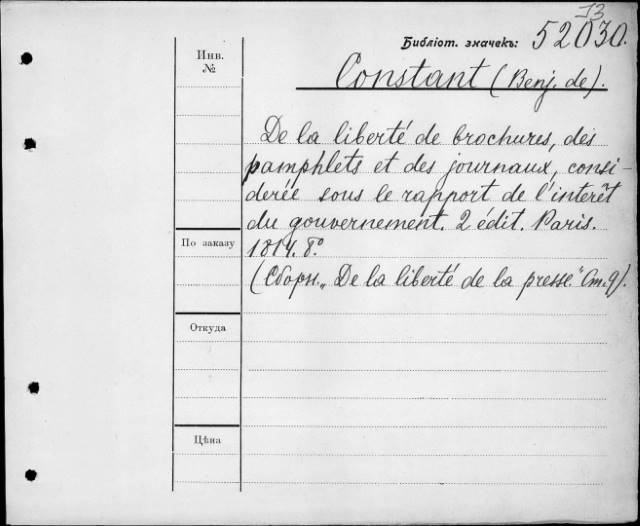 13
Библіот. значекъ: 52030.
Инв.
№
Constant (Benj. de).
De la liberté de brochures, des
pamphlets et des journaux, consi-
derée sous le rapport de l'interêt
du gouvernement. 2 édit. Paris.
По заказу
1814. 8°
(Сборн. „De la liberté de la presse." Ст. 9).
Откуда
Цѣна